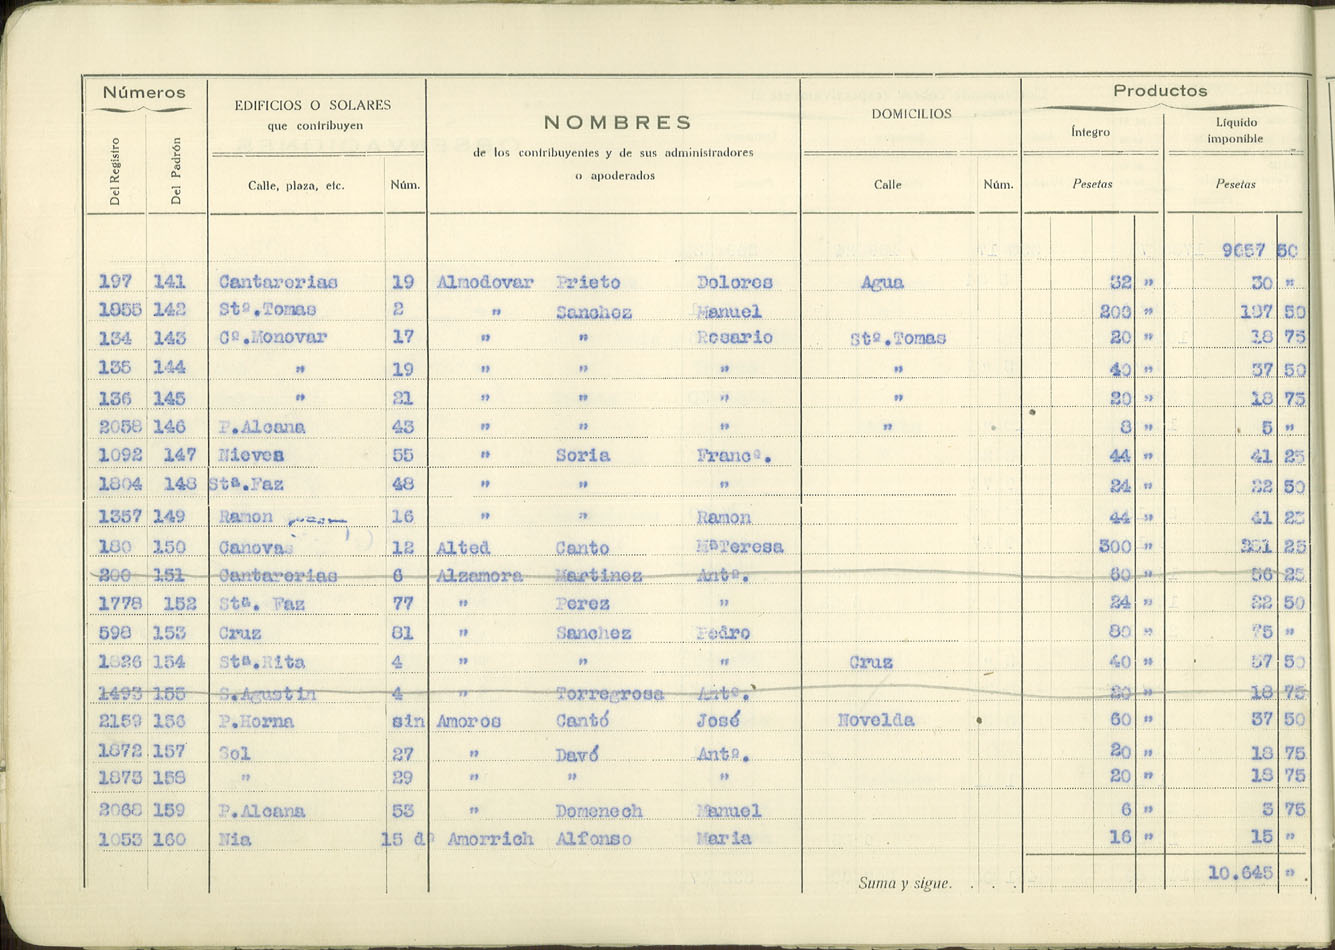 Números
EDIFICIOS O SOLARES
que contribuyen
NOMBRES
de los contribuyentes y de sus administradores
o apoderados
DOMICILIOS
Productos
Del Registro Del Padrón Calle, plaza, etc. Núm. Calle Núm. Íntegro Líquido imponible
Pesetas Pesetas
9657 50
197 141 Cantarerias 19 Almodovar Prieto Dolores Agua 32 " 30 "
1955 142 Stº.Tomas 2 " Sanchez Manuel 200 " 187 50
134 143 Cº.Monovar 17 " " Rosario Stº.Tomas 20 " 18 75
135 144 " 19 " " " " 40 " 37 50
136 145 " 21 " " " " 20 " 18 75
2058 146 P.Alcana 43 " " " " 8 " 5 "
1092 147 Nieves 55 " Soria Francº. 44 " 41 25
1804 148 Stª.Faz 48 " " " 24 " 22 50
1357 149 Ramon 16 " " Ramon 44 " 41 25
180 150 Canovas 12 Alted Canto MªTeresa 300 " 25
200 151 Cantarerias 6 Alzamora Martinez Antº. 60 " 56 25
1778 152 Stª. Faz 77 " Perez " 24 " 22 50
598 153 Cruz 81 " Sanchez Pedro 80 " 75 "
1826 154 Stª.Rita 4 " " " Cruz 40 " 37 50
1493 155 S.Agustin 4 " Torregrosa Antº. 20 " 18 75
2159 156 P.Horna sin Amoros Cantó José Novelda 60 " 37 50
1872 157 Sol 27 " Davó Antº. 20 " 18 75
1873 158 " 29 " " " 20 " 18 75
2068 159 P.Alcana 53 " Domenech Manuel 6 " 3 75
1053 160 Nia 15 dº Amorrich Alfonso Maria 16 " 15 "
Suma y sigue. . . . 10.645 "